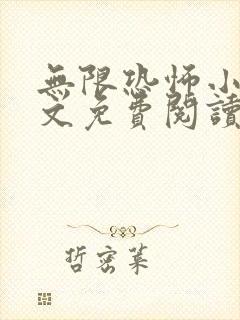 無限恐怖小
文免費閱讀
哲密葉